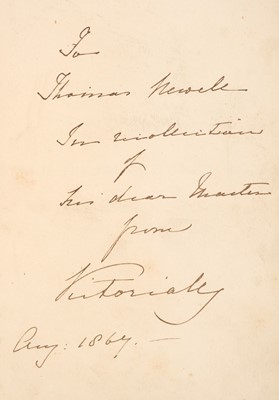 To
Thomas Newell
In recollection
of
his dear Master
from
Victoria R
Aug: 1867.